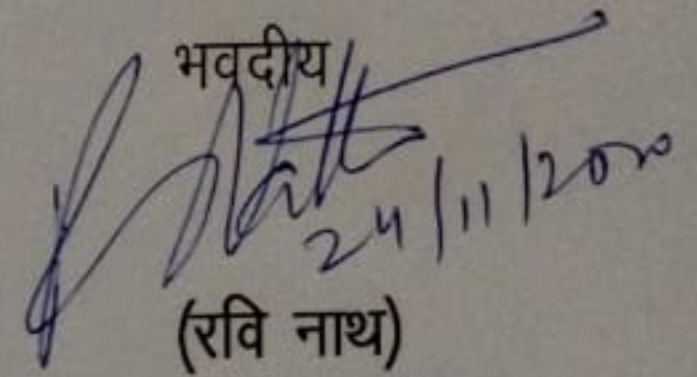 भवदीय
24/11/2020
(रवि नाथ)